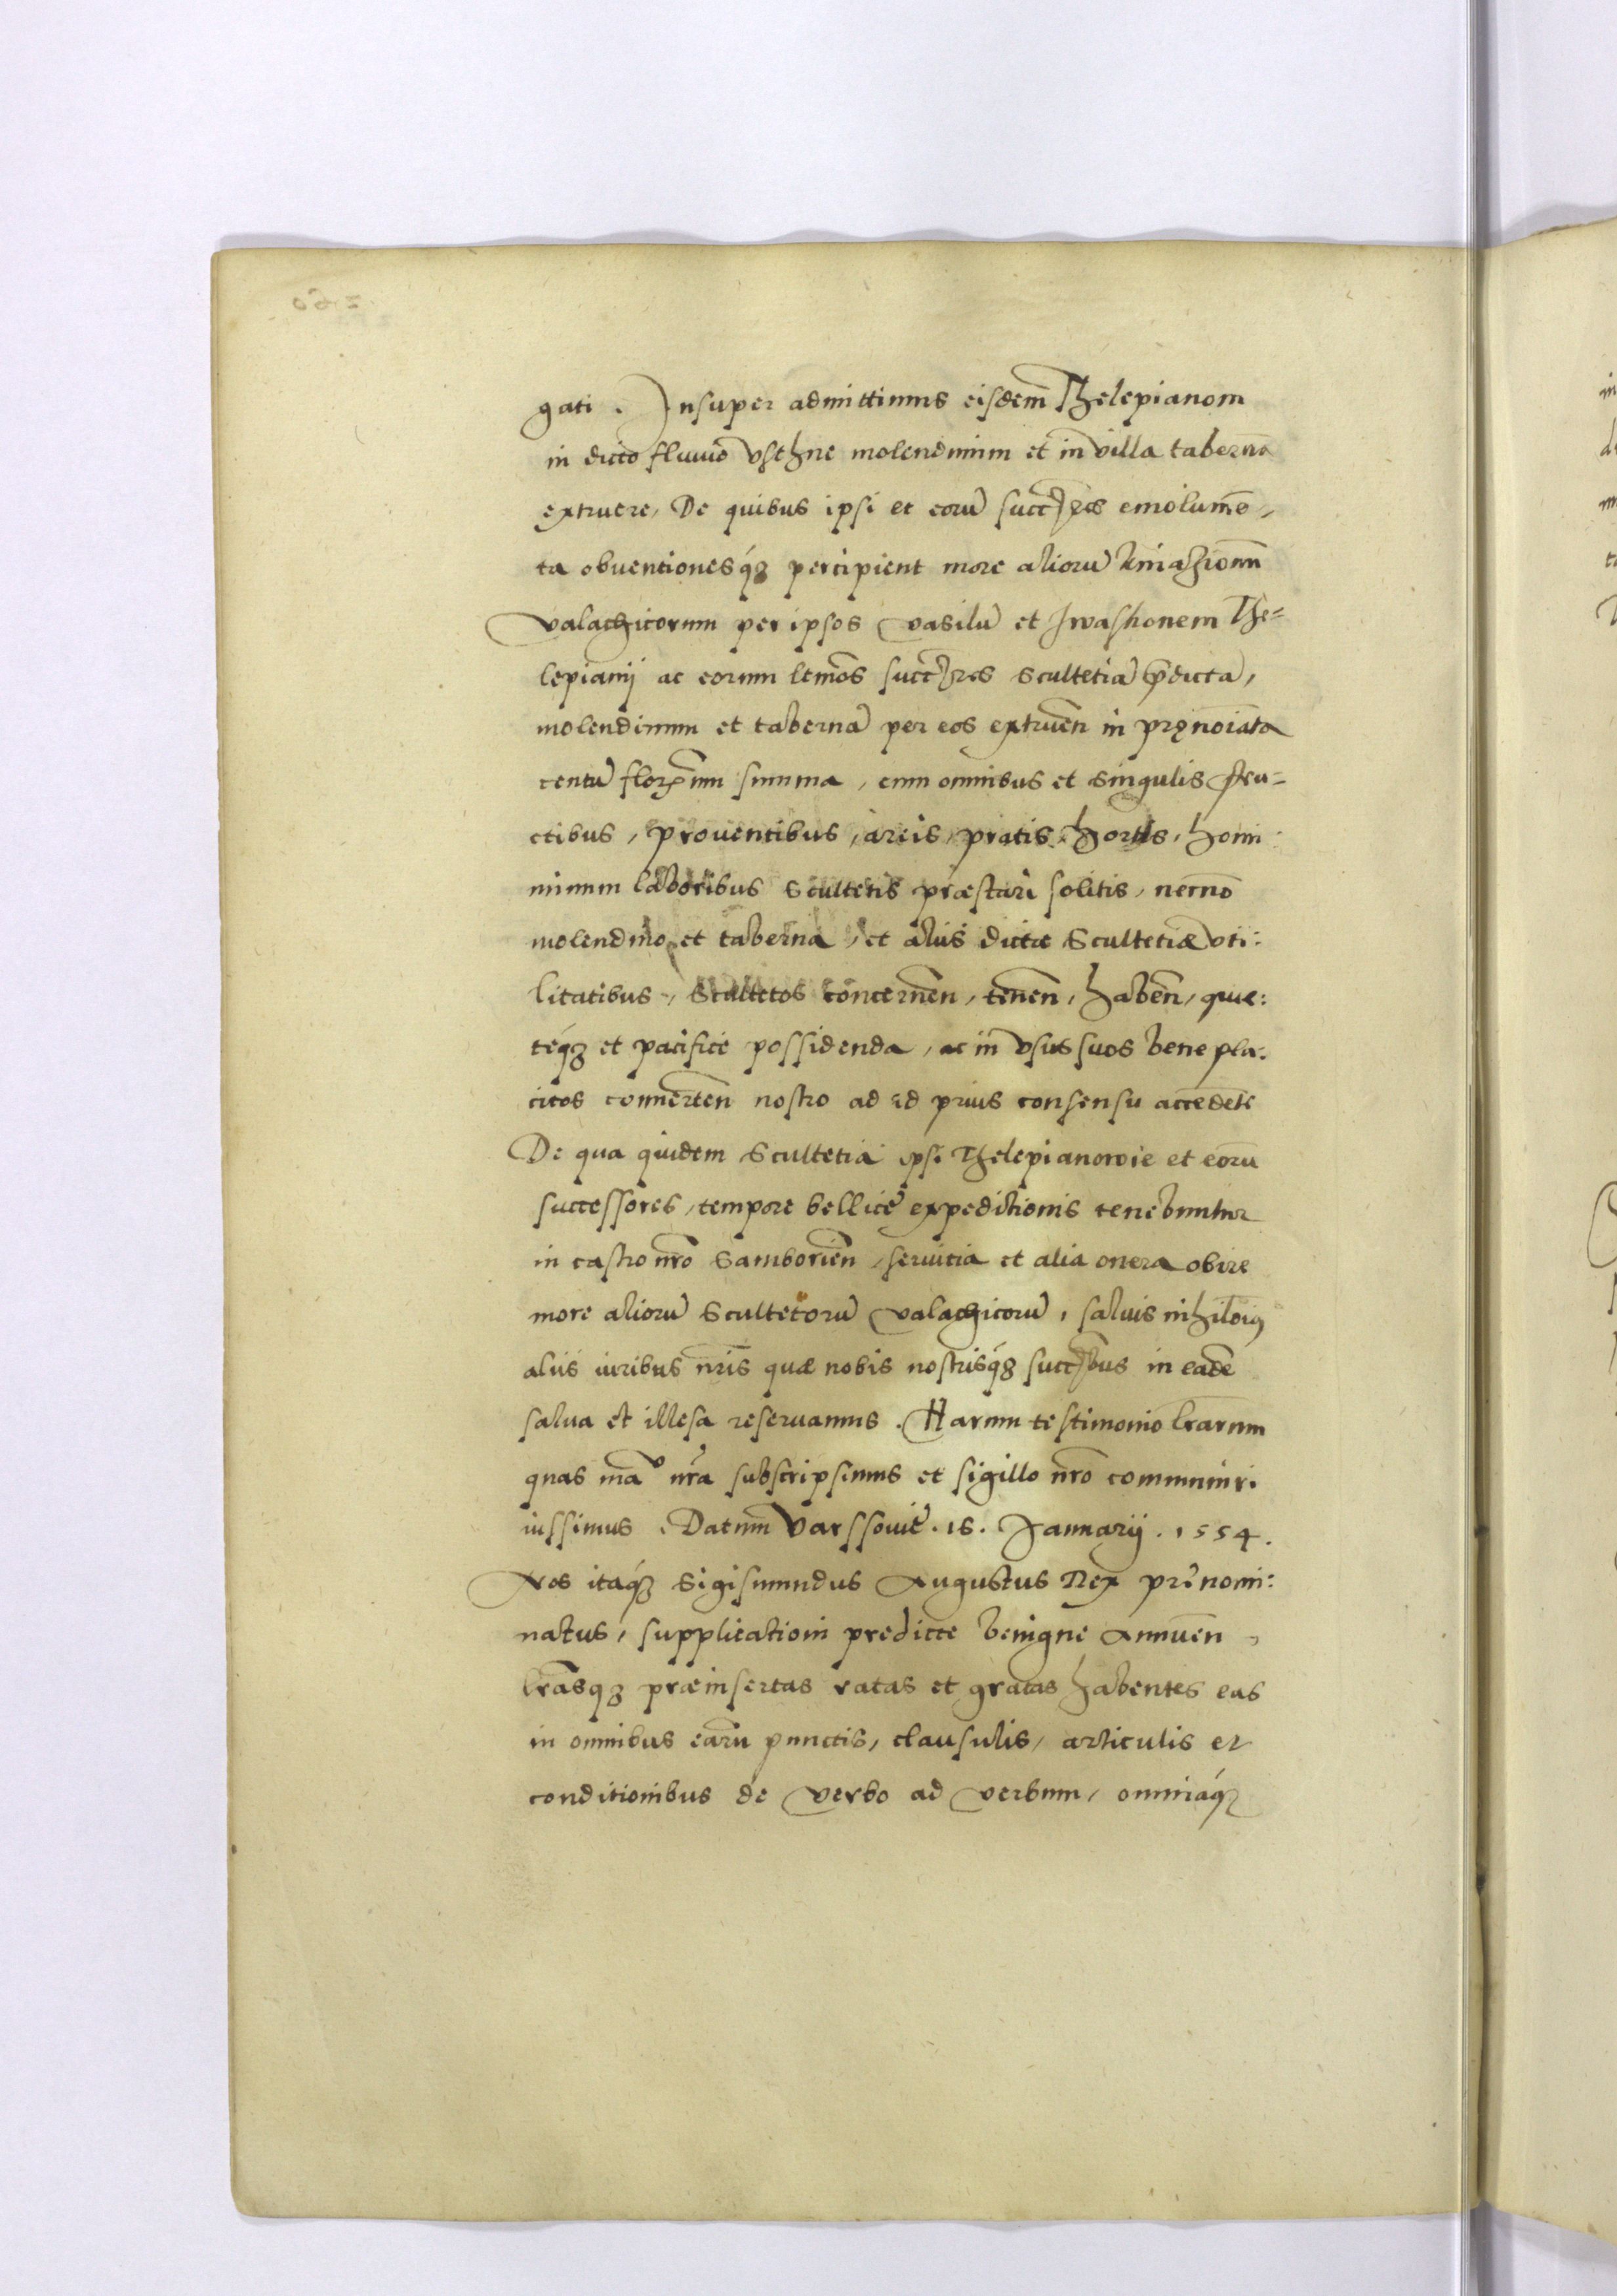 gati. Insuper admittimus eisdem̃ Thelepianom
in dicto fluuio Vsthne molendinum et in villa taberna
extruere, De quibus ipsi et eoru̅ succr̃es emolume̅,
ta obuentionesq́ꝫ percipient more alioru̅ kniazionum
Valachicorum per ipsos Vasilu̅ et Iwashonem The=
lepianij ac eorum lem̃os succr̃es Scultetia̅ p̃dicta̅,
molendinum et taberna̅ per eos extruen̅ in pręnoiãta
centu̅ florenum summa, cum omnibus et singulis fru=
ctibus, prouentibus, areis, pratis, hortis, homi:
minum laboribus Scultetis præstari solitis, necno̅
molendino et taberna, et alijs dictæ Scultetiæ vti:
litatibus, Scultetos concernen̅, tenen̅, haben̅, quie:
teq́ꝫ et pacifice possidenda, ac in vsus suos bene pla:
citos conuerten̅ nostro ad id prius consensu accede̅te
De qua quidem Scultetia ipsi Thelepianowie et eoru̅
successores, tempore bellicę expeditionis tenebuntur
in castro nr̃o Samborien̅, seruitia et alia onera obire
more alioru̅ Scultetoru̅ Valachicoru̅, saluis nihilo͠iꝯ
alijs iuribus nr̃is quæ nobis nostrisq́ꝫ succr̃ibus in eade̅
salua et illesa reseruamus. Harum testimonio lr̃arum
quas ma᷉º nr̃a subscripsimus et sigillo nr̃o communiri
iussimus. Datum Varssouię. 15. Januarij. 1554.
Nos itaq́ꝫ Sigismundus Augustus Rex pręnomi:
natus, supplicationi predicte benigne Annuen̅,
lr̃asqꝫ præinsertas ratas et gratas habentes eas
in omnibus earu̅ punctis, clausulis, articulis et
conditionibus de verbo ad verbum, omniaq́ꝫ